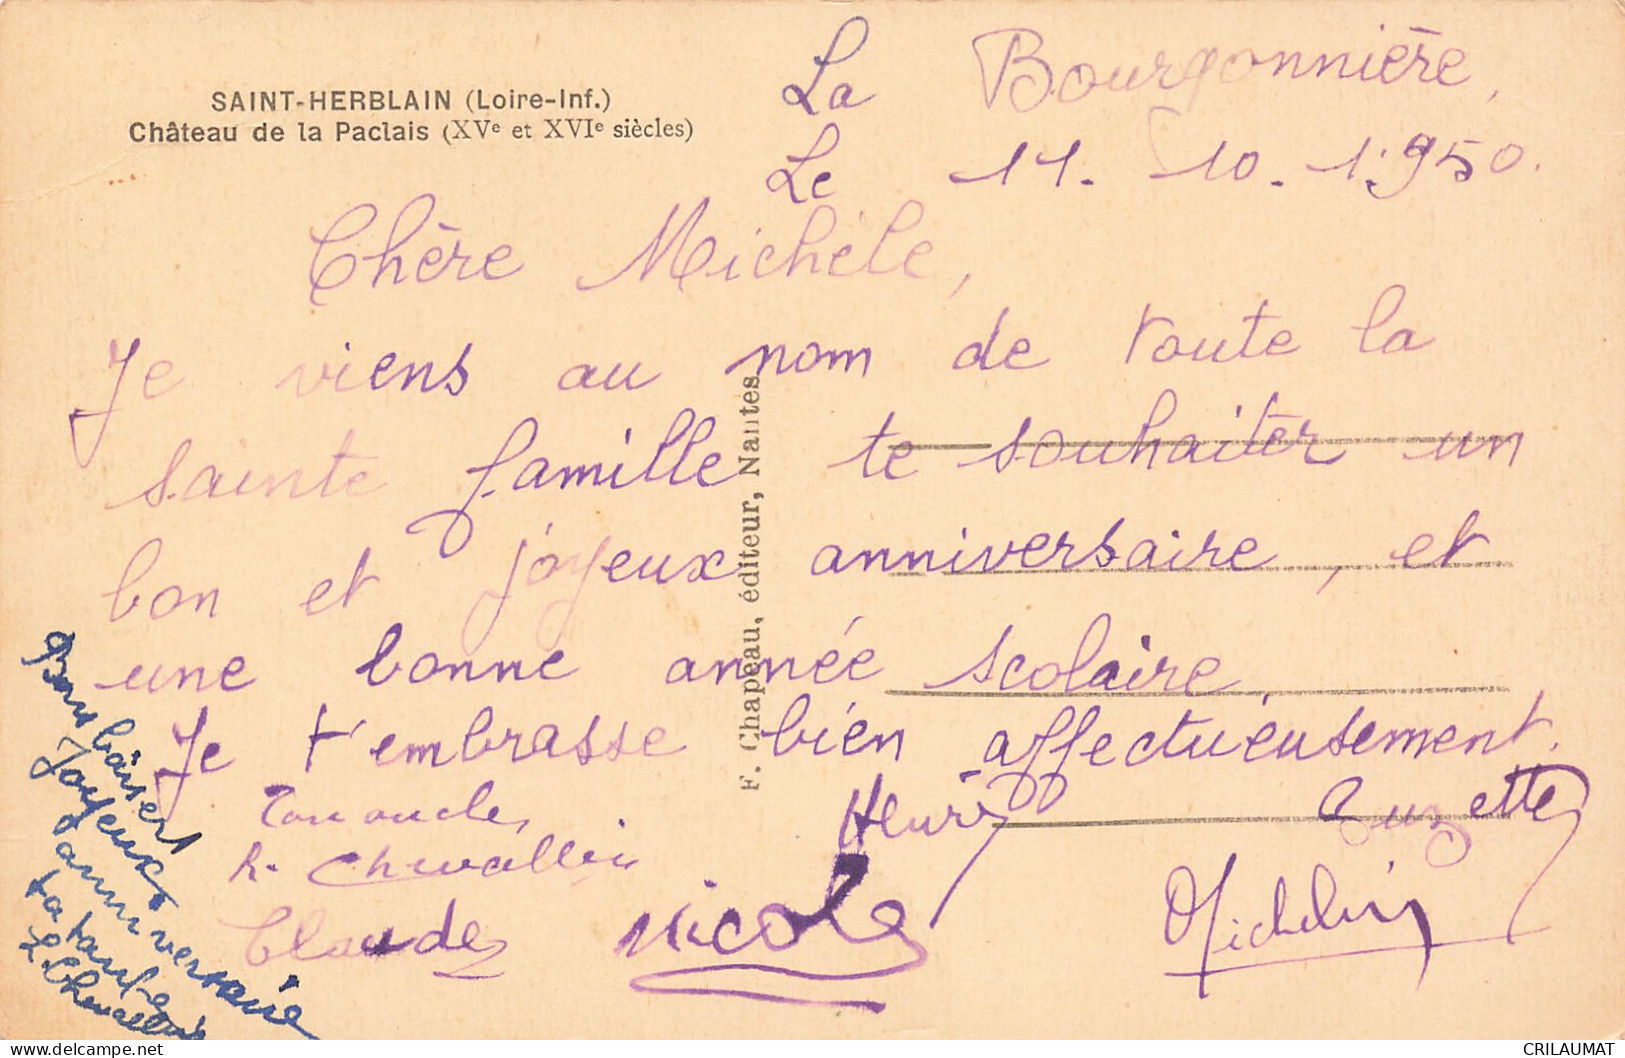 SAINT-HERBLAIN (Loire-Inf.)
Château de la Paclais (XVe et XVIe siècles)
La Bourgonnière,
Le 11. 10. 1.950.
Chère Michèle,
Je viens au nom de toute la
sainte famille te souhaiter un
bon et joyeux anniversaire, et
une bonne année scolaire.
Je t'embrasse bien affectueusement.
Ton oncle,
h. Chevallier
Henri
Suzette
Claude
Nicole
Michelin
Bons baisers
Joyeux
anniversaire
ta tante
L. Chevallier
F. Chapeau, éditeur, Nantes
CRILAUMAT